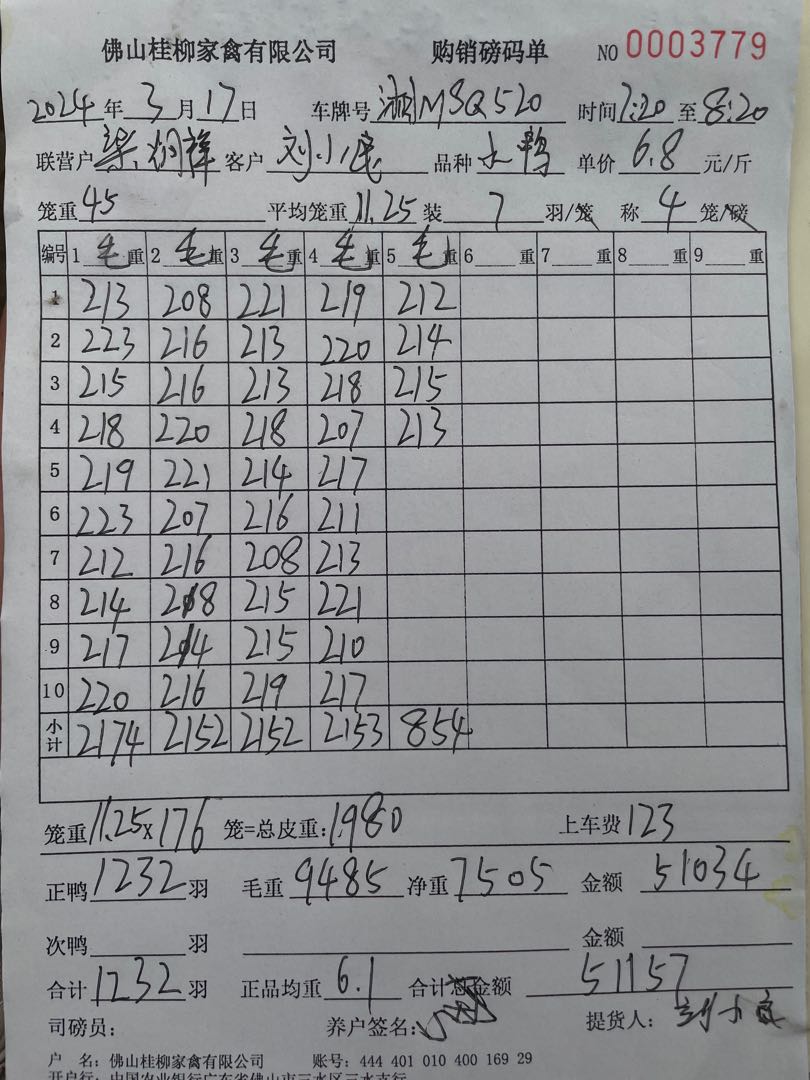 佛山桂柳家禽有限公司 购销磅码单 NO 0003779
2024 年 3 月 17 日 车牌号 湘M8Q520 时间 7:20 至 8:20
联营户 梁炯祥 客户 刘小民 品种 水鸭 单价 6.8 元/斤
笼重 45 平均笼重 11.25 装 7 羽/笼 称 4 笼/磅
编号 1 毛 重 2 毛 重 3 毛 重 4 毛 重 5 毛 重 6 重 7 重 8 重 9 重
1 213 208 221 219 212
2 223 216 213 220 214
3 215 216 213 218 215
4 218 220 218 207 213
5 219 221 214 217
6 223 207 216 211
7 212 216 208 213
8 214 218 215 221
9 217 214 215 210
10 220 216 219 217
小计 2174 2152 2152 2153 854
笼重 11.25 x 176 笼=总皮重: 1980 上车费 123
正鸭 1232 羽 毛重 9485 净重 7505 金额 51034
次鸭 羽 金额
合计 1232 羽 正品均重 6.1 合计总金额 51157
司磅员: 养户签名: 提货人: 刘小民
户 名: 佛山桂柳家禽有限公司 账号: 444 401 010 400 169 29
开户行: 中国农业银行广东省佛山市三水区三水支行